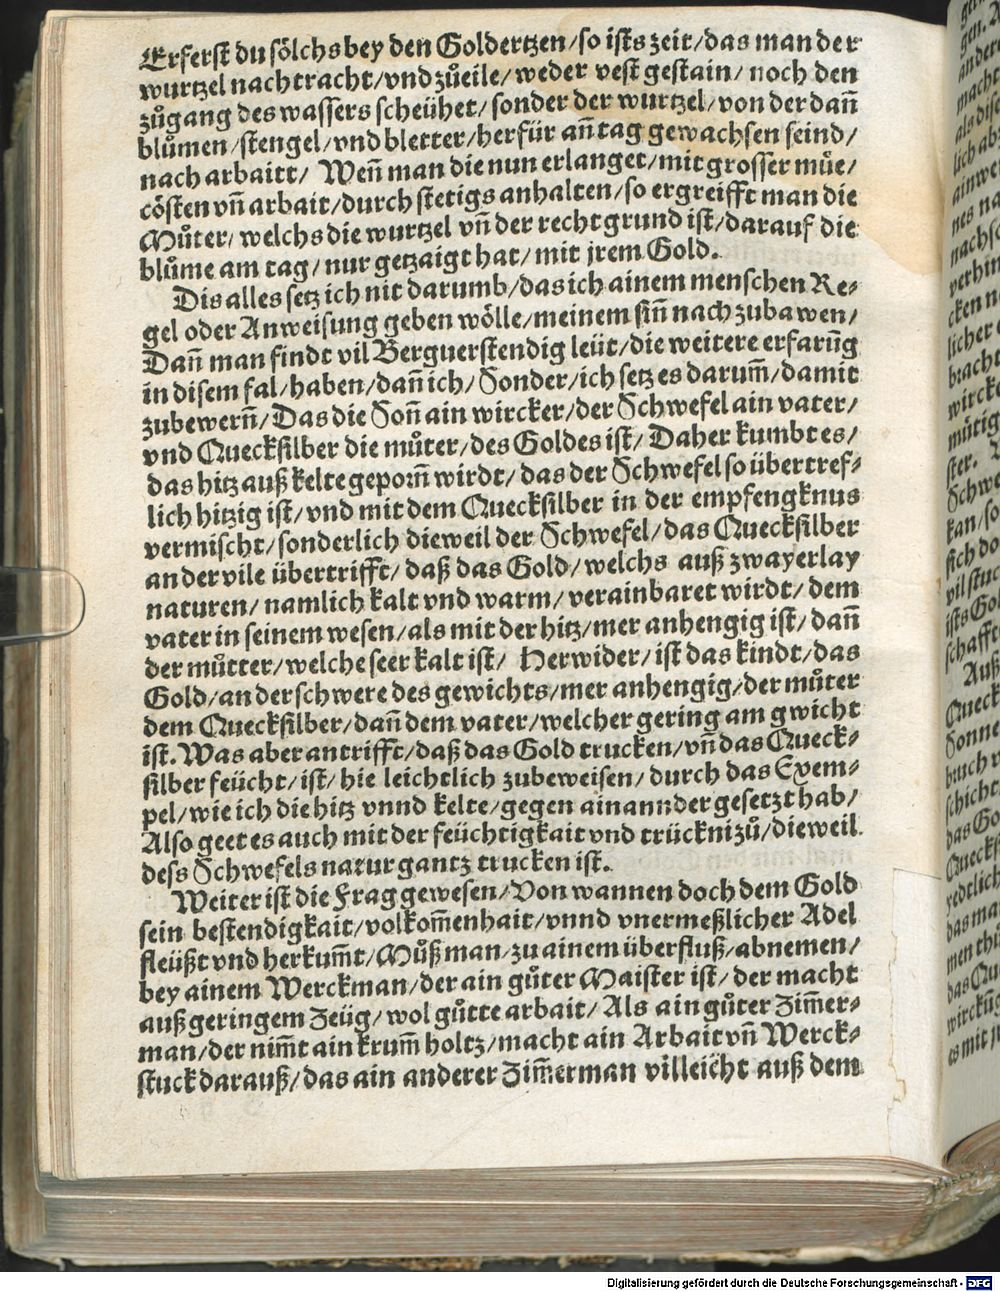 Erferst du sölchs bey den Goldertzen/ so ists zeit/ das man der
wurtzel nachtracht/ vnd zůeile/ weder vest gestain/ noch den
zůgang des wassers scheühet/ sonder der wurtzel/ von der dañ
blůmen/ stengel/ vnd bletter/ herfür añ tag gewachsen seind/
nach arbaitt/ Weñ man die nun erlanget/ mit grosser můe/
cösten vñ arbait/ durch stetigs anhalten/ so ergreifft man die
Můter/ welchs die wurtzel vñ der recht grund ist/ darauf die
blůme am tag/ nur getzaigt hat/ mit jrem Gold.
Dis alles setz ich nit darumb/ das ich ainem menschen Re-
gel oder Anweisung geben wölle/ meinem siñ nach zubawen/
Dañ man findt vil Berguerstendig leüt/ die weitere erfarũg
in disem fal/ haben/ dañ ich/ Sonder/ ich setz es darum̃/ damit
zubewerñ/ Das die Soñ ain wircker/ der Schwefel ain vater/
vnd Quecksilber die můter/ des Goldes ist/ Daher kumbt es/
das hitz auß kelte geporñ wirdt/ das der Schwefel so übertref-
lich hitzig ist/ vnd mit dem Quecksilber in der empfengknus
vermischt/ sonderlich dieweil der Schwefel/ das Quecksilber
an der vile übertrifft/ daß das Gold/ welchs auß zwayerlay
naturen/ namlich kalt vnd warm/ verainbaret wirdt/ dem
vater in seinem wesen/ als mit der hitz/ mer anhengig ist/ dañ
der můtter/ welche seer kalt ist/ Herwider/ ist das kindt/ das
Gold/ an der schwere des gewichts/ mer anhengig/ der můter
dem Quecksilber/ dañ dem vater/ welcher gering am gwicht
ist. Was aber antrifft/ daß das Gold trucken/ vñ das Queck-
silber feücht/ ist/ hie leichtlich zubeweisen/ durch das Exem-
pel/ wie ich die hitz vnnd kelte/ gegen ainannder gesetzt hab/
Also geet es auch mit der feüchtigkait vnd trücknizů/ dieweil
dess Schwefels natur gantz trucken ist.
Weiter ist die Frag gewesen/ Von wannen doch dem Gold
sein bestendigkait/ volkom̃enhait/ vnnd vnermeßlicher Adel
fleüßt vnd herkum̃t/ Můß man/ zu ainem überfluß/ abnemen/
bey ainem Werckman/ der ain gůter Maister ist/ der macht
auß geringem Zeüg/ wol gůtte arbait/ Als ain gůter Zim̃er-
man/ der nim̃t ain krum̃ holtz/ macht ain Arbait vñ Werck-
stuck darauß/ das ain anderer Zim̃erman villeicht auß dem
Digitalisierung gefördert durch die Deutsche Forschungsgemeinschaft - DFG